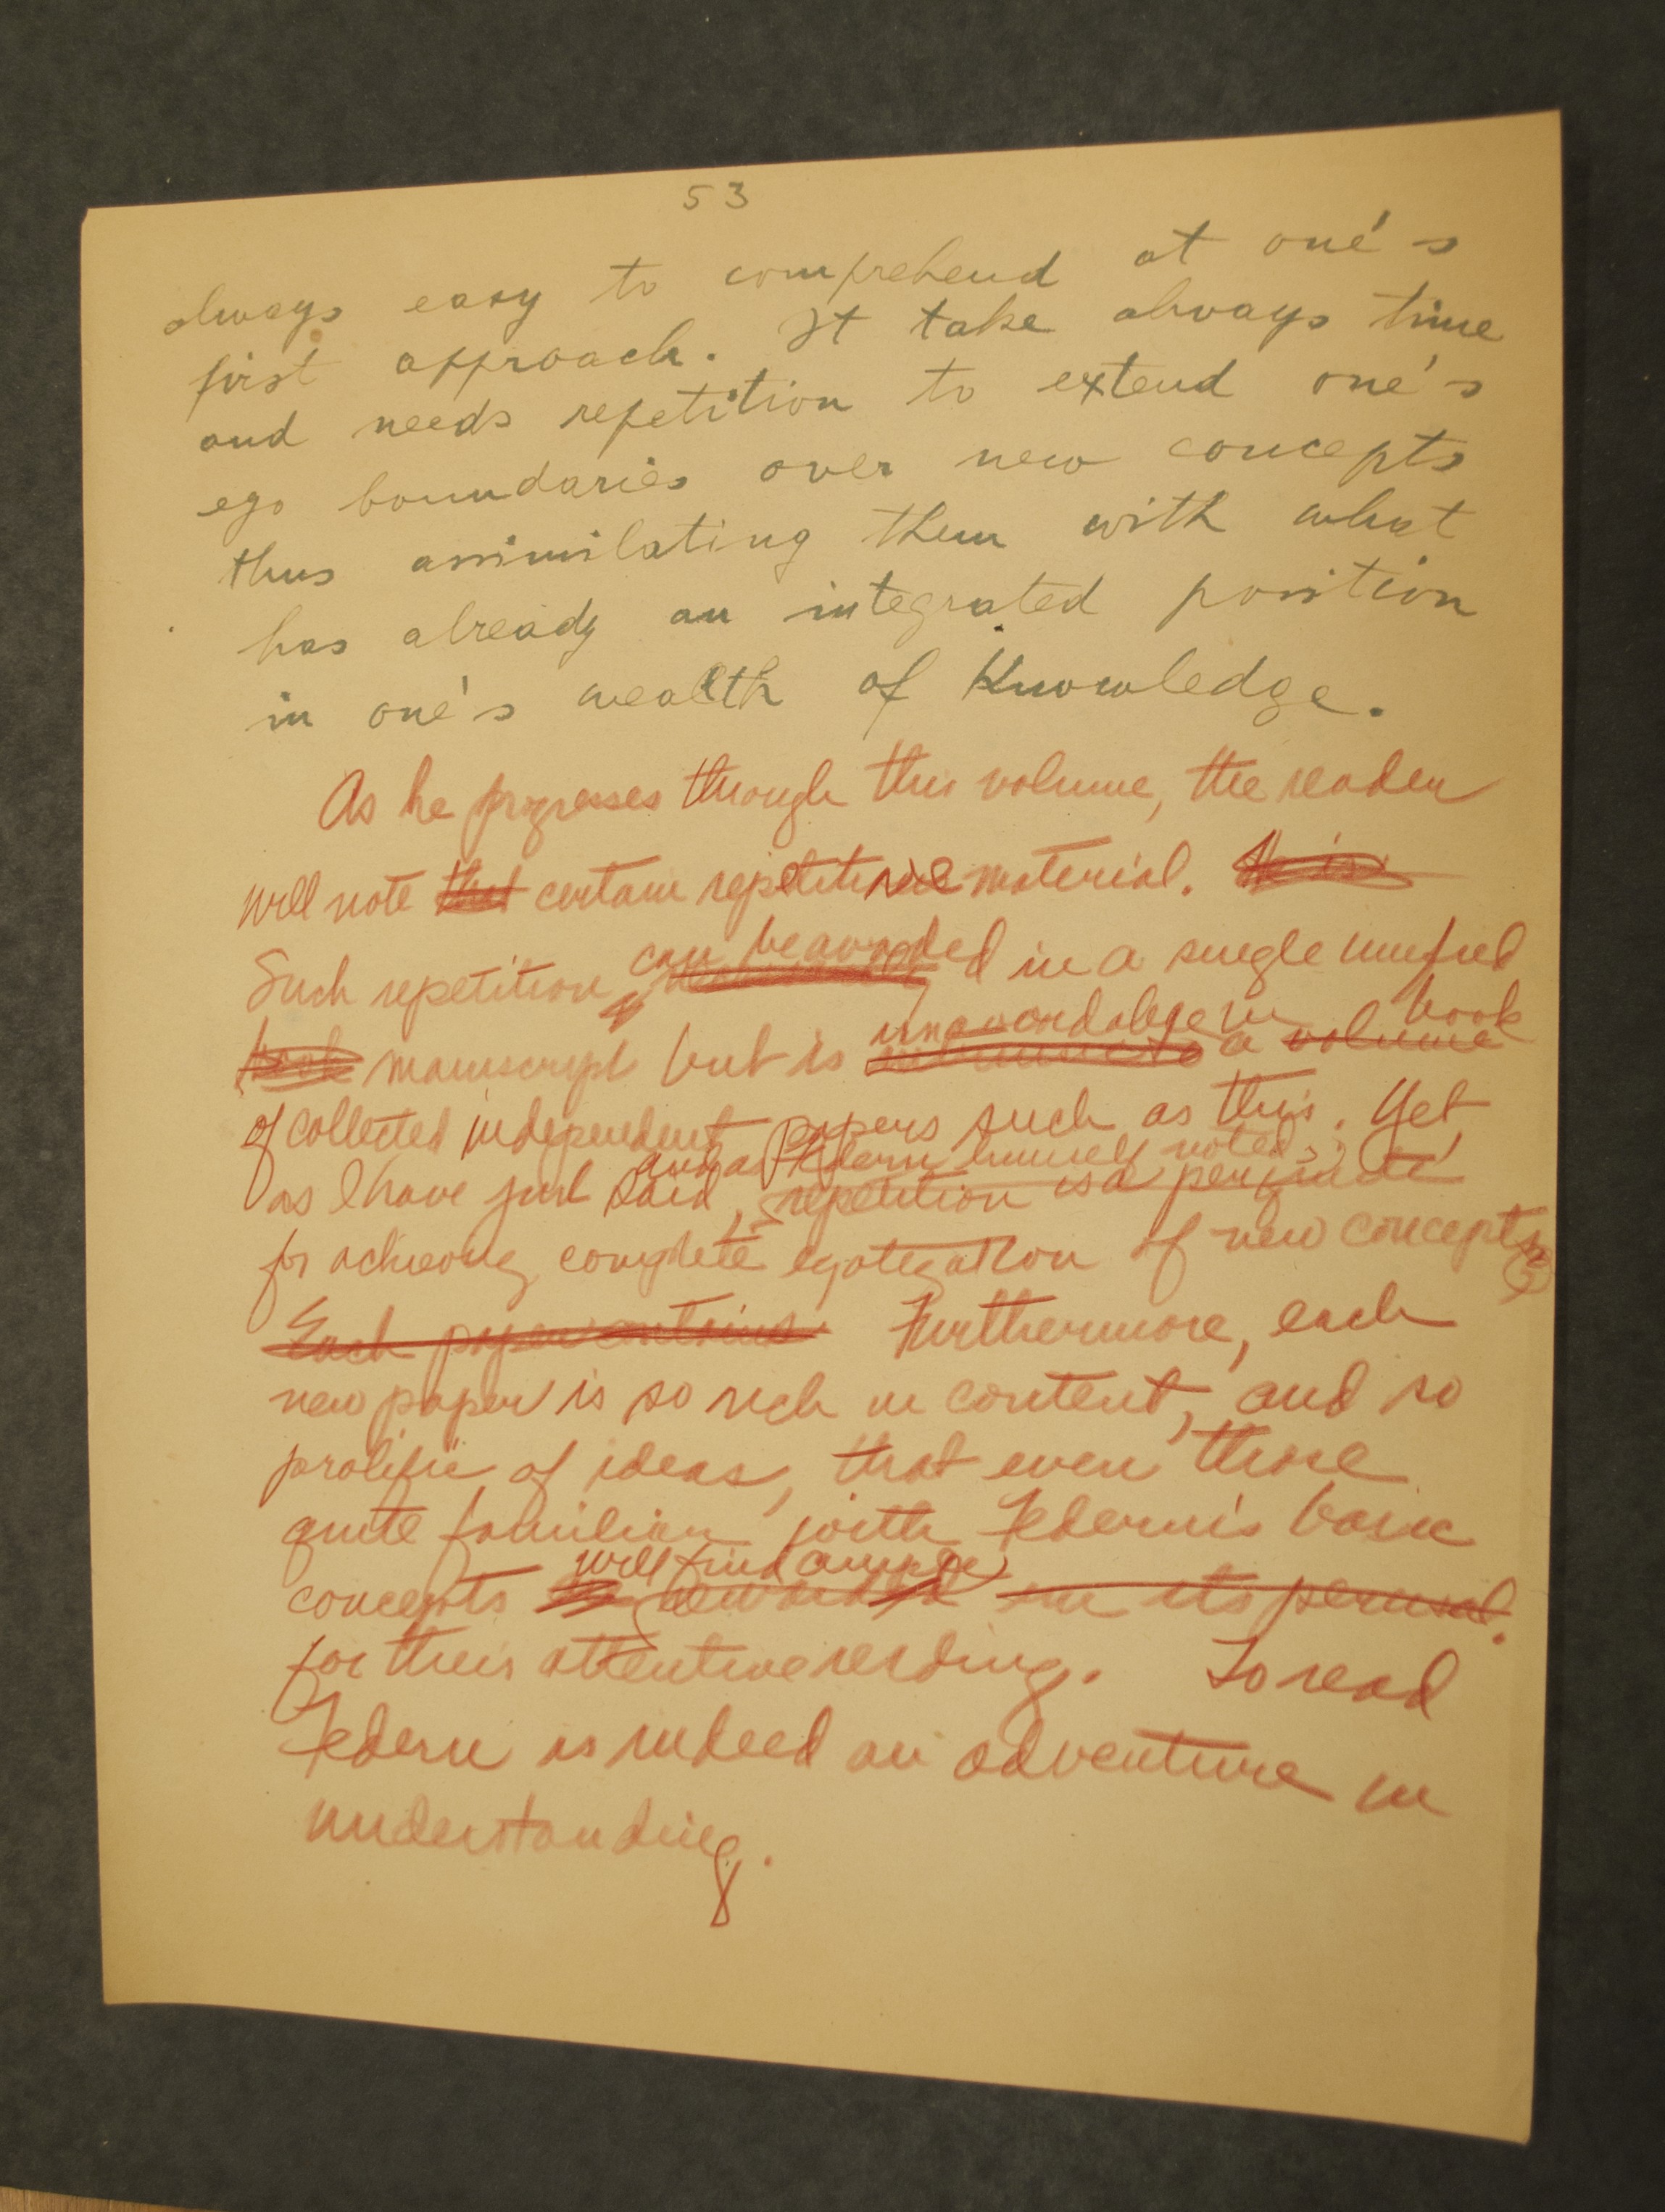 53
always easy to comprehend at one's
first approach. It take always time
and needs repetition to extend one's
ego boundaries over new concepts
thus assimilating them with what
has already an integrated position
in one's wealth of Knowledge.
As he progresses through this volume, the reader
will note that certain repetitive material. He is
Such repetition can be avoided in a single unified
book manuscript but is unavoidable in a volume book
of collected independent papers such as this. Yet
and as Federn himself noted,
as I have just said, repetition is a
for achieving complete egotization of new concepts
Each paper contains Furthermore, each
new paper is so rich in content, and so
prolific of ideas, that even those
quite familiar with Federn's basic
will find ample
concepts reward in its perusal.
for their attentive reading. To read
Federn is indeed an adventure in
understanding.